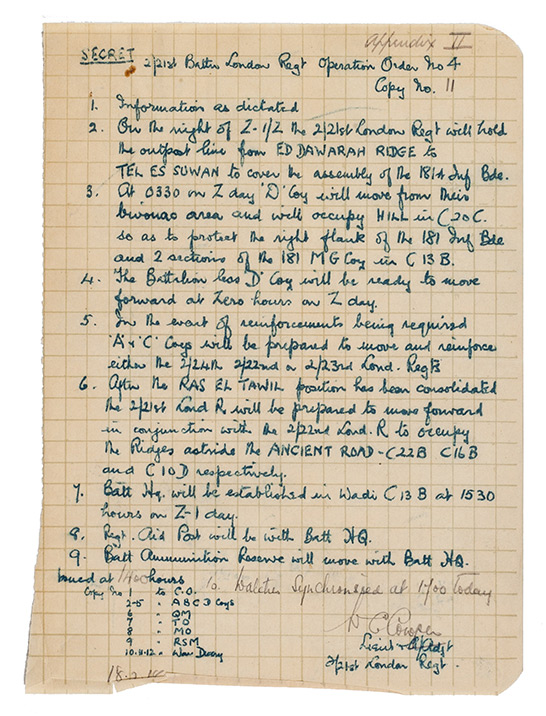 Appendix II
SECRET 2/21st Battn London Regt Operation Order No 4
Copy No. 11
1. Information as dictated
2. On the night of Z-1/Z the 2/21st London Regt will hold
the outpost line from ED DAWARAH RIDGE to
TEL ES SUWAN to cover the assembly of the 181st Inf Bde.
3. At 0330 on Z day 'D' Coy will move from their
bivouac area and will occupy HILL in C20C.
so as to protect the right flank of the 181 Inf Bde
and 2 sections of the 181 MG Coy in C13B.
4. The Battalion less 'D' Coy will be ready to move
forward at Zero hours on Z day.
5. In the event of reinforcements being required
'A' & 'C' Coys will be prepared to move and reinforce
either the 2/24th 2/22nd or 2/23rd Lond. Regts
6. After the RAS EL TAWIL position has been consolidated
the 2/21st Lond R. will be prepared to move forward
in conjunction with the 2/22nd Lond. R to occupy
the Ridges astride the ANCIENT ROAD - C22B C16B
and C10D respectively.
7. Batt Hq. will be established in Wadi C13B at 1530
hours on Z-1 day.
8. Regt. Aid Post will be with Batt HQ.
9. Batt Ammunition Reserve will move with Batt HQ.
Issued at 1400 hours 10. Watches Synchronised at 1700 today
Copy No 1 to C.O.
2-5 " A B C D Coys
6 " QM
7 " TO
8 " MO
9 " RSM
10.11.12 " War Diary
Lieut & A/Adjt
2/21st London Regt.